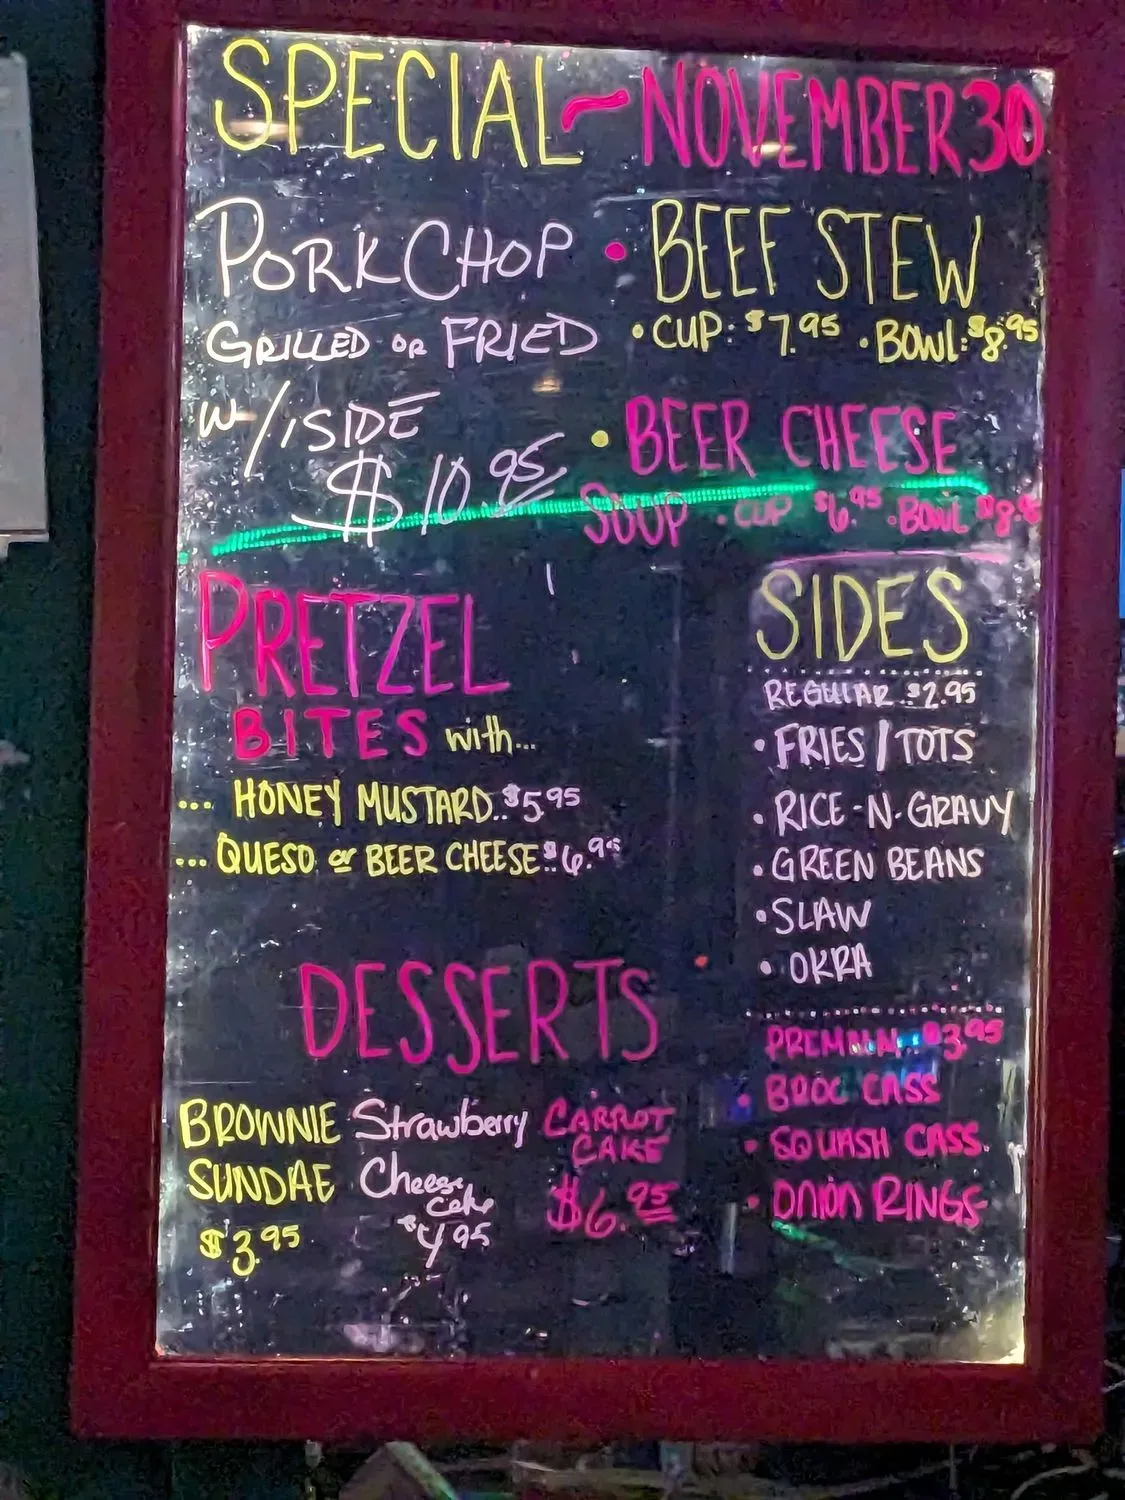 SPECIAL ~ NOVEMBER 30
PORK CHOP
GRILLED OR FRIED
W/ 1 SIDE
$10.95
• BEEF STEW
• CUP: $7.95 • BOWL: $8.95
• BEER CHEESE
SOUP • CUP $6.95 • BOWL $8.
PRETZEL
BITES with...
... HONEY MUSTARD.. $5.95
... QUESO or BEER CHEESE.. $6.95
SIDES
REGULAR.. $2.95
• FRIES / TOTS
• RICE-N-GRAVY
• GREEN BEANS
• SLAW
• OKRA
PREMIUM.. $3.95
• BROC CASS
• SQUASH CASS.
• ONION RINGS
DESSERTS
BROWNIE
SUNDAE
$3.95
Strawberry
Cheese
cake
$4.95
CARROT
CAKE
$6.95